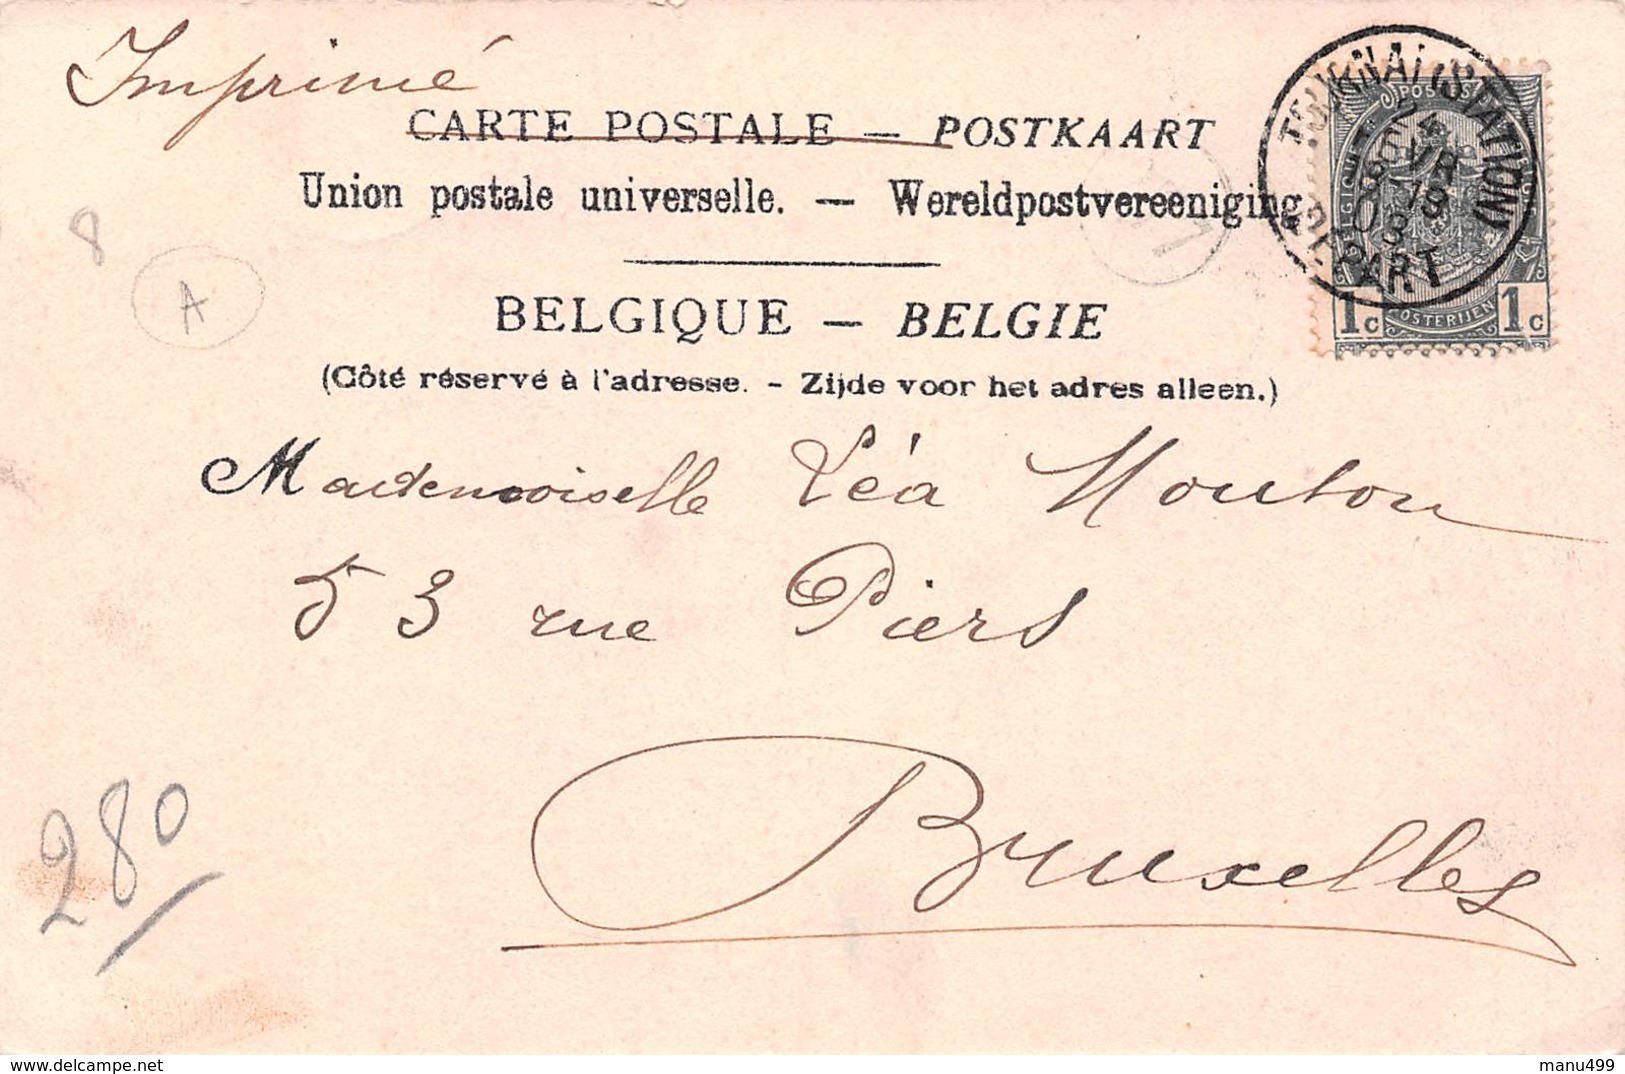 Imprimé
CARTE POSTALE — POSTKAART
Union postale universelle. — Wereldpostvereeniging
BELGIQUE — BELGIE
(Côté réservé à l'adresse. - Zijde voor het adres alleen.)
TOURNAI (STATION)
POSTES
OSTERIJEN
1c 1c
8
A
Mademoiselle Léa Mouton
53 rue Piers
Bruxelles
280
delcampe.net
manu499